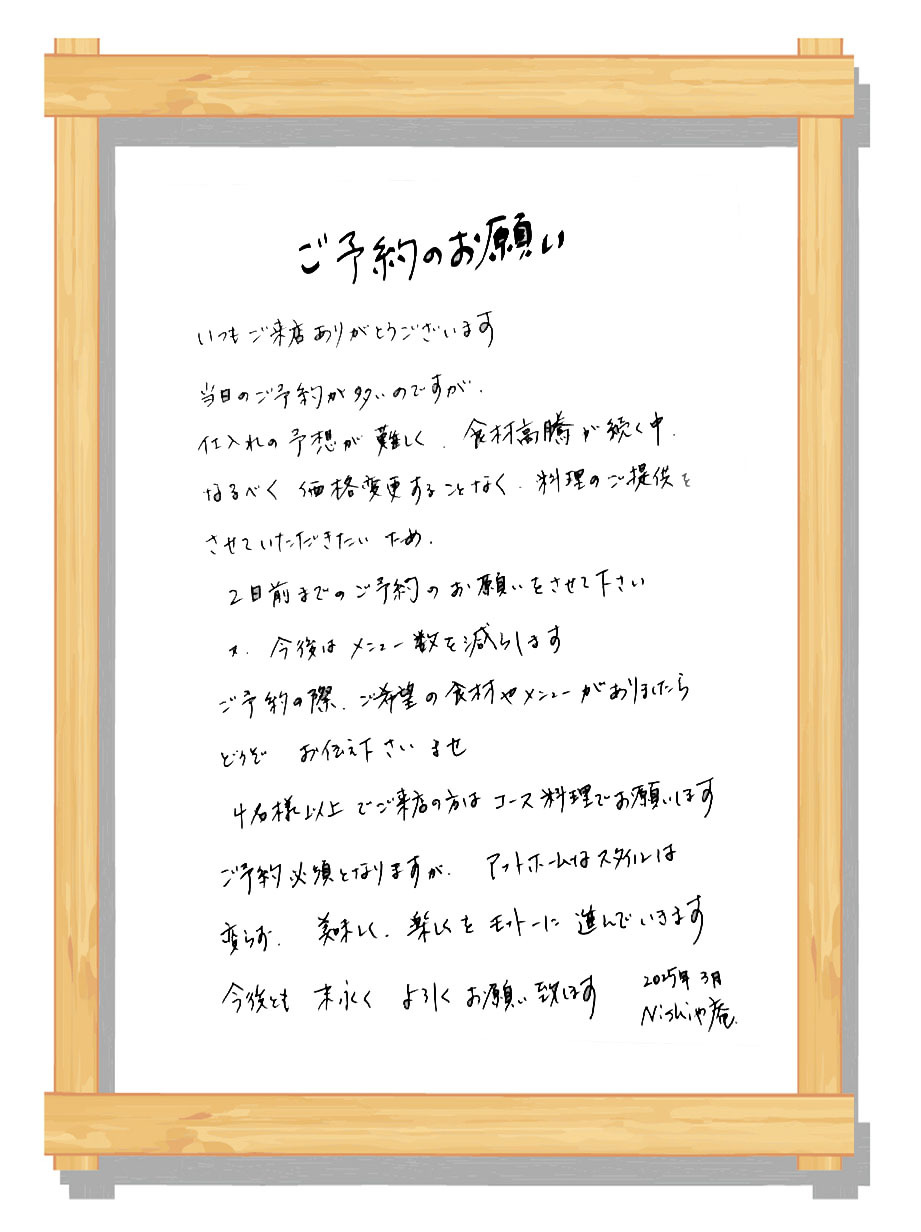 ご予約のお願い
いつもご来店ありがとうございます
当日のご予約が多いのですが、
仕入れの予想が難しく、食材高騰が続く中、
なるべく価格変更することなく、料理のご提供を
させていただきたいため、
2日前までのご予約のお願いをさせて下さい
又、今後はメニュー数を減らします
ご予約の際、ご希望の食材やメニューがありましたら
どうぞ お伝え下さいませ
4名様以上でご来店の方はコース料理でお願いします
ご予約必須となりますが、アットホームなスタイルは
変らず、美味しく、楽しくをモットーに進んでいきます
今後とも 末永く よろしく お願い致します
2025年3月
Nishiや庵.